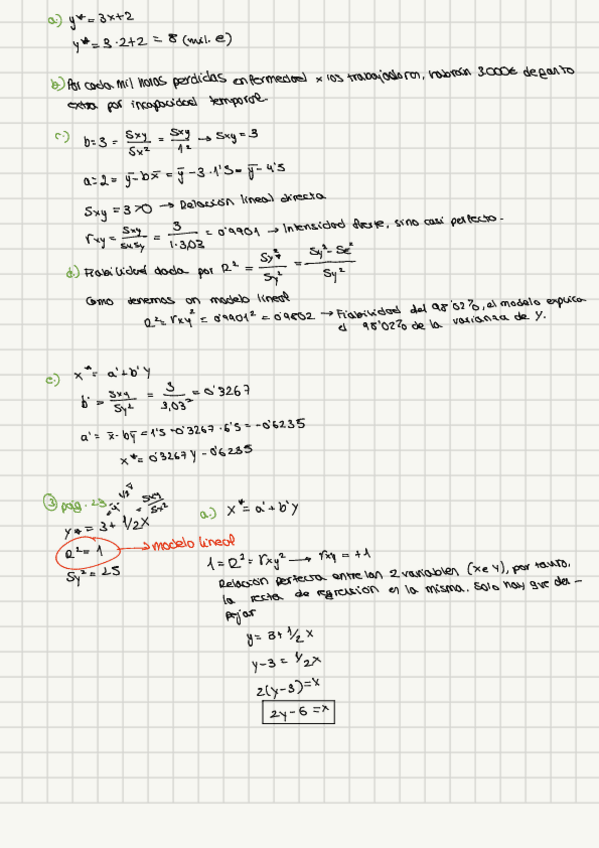 a.) y* = 3x+2
y* = 3·2+2 = 8 (mil. €)
b) Por cada mil horas perdidas enfermedad x los trabajadores, habrán 3000€ de gasto
extra por incapacidad temporal.
c.) b=3 = Sxy/Sx² = Sxy/1² → Sxy = 3
a=2 = ȳ-bx̄ = ȳ-3·1'5 = ȳ-4'5
Sxy = 3>0 → Relación lineal directa
rxy = Sxy/SxSy = 3/1·3,03 = 0'9901 → Intensidad fuerte, sino casi perfecto.
d.) Fiabilidad dada por R² = Sy*²/Sy² = Sy²-Se²/Sy²
Como tenemos un modelo lineal
R² = rxy² = 0'9901² = 0'9802 → Fiabilidad del 98'02%, el modelo explica
el 98'02% de la varianza de Y.
e.) x* = a'+b'Y
b' = Sxy/Sy² = 3/3,03² = 0'3267
a' = x̄-bȳ = 1'5-0'3267·6'5 = -0'6235
x* = 0'3267y-0'6235
③ pág. 23
= Sxy/Sx²
y* = 3+1/2x
R² = 1 → modelo lineal
Sy² = 25
a.) x* = a'+b'y
1 = R² = rxy² → rxy = +1
Relación perfecta entre las 2 variables (x e y), por tanto,
la recta de regresión es la misma. Solo hay que des-
pejar
y = 3+1/2x
y-3 = 1/2x
2(y-3) = x
2y-6 = x